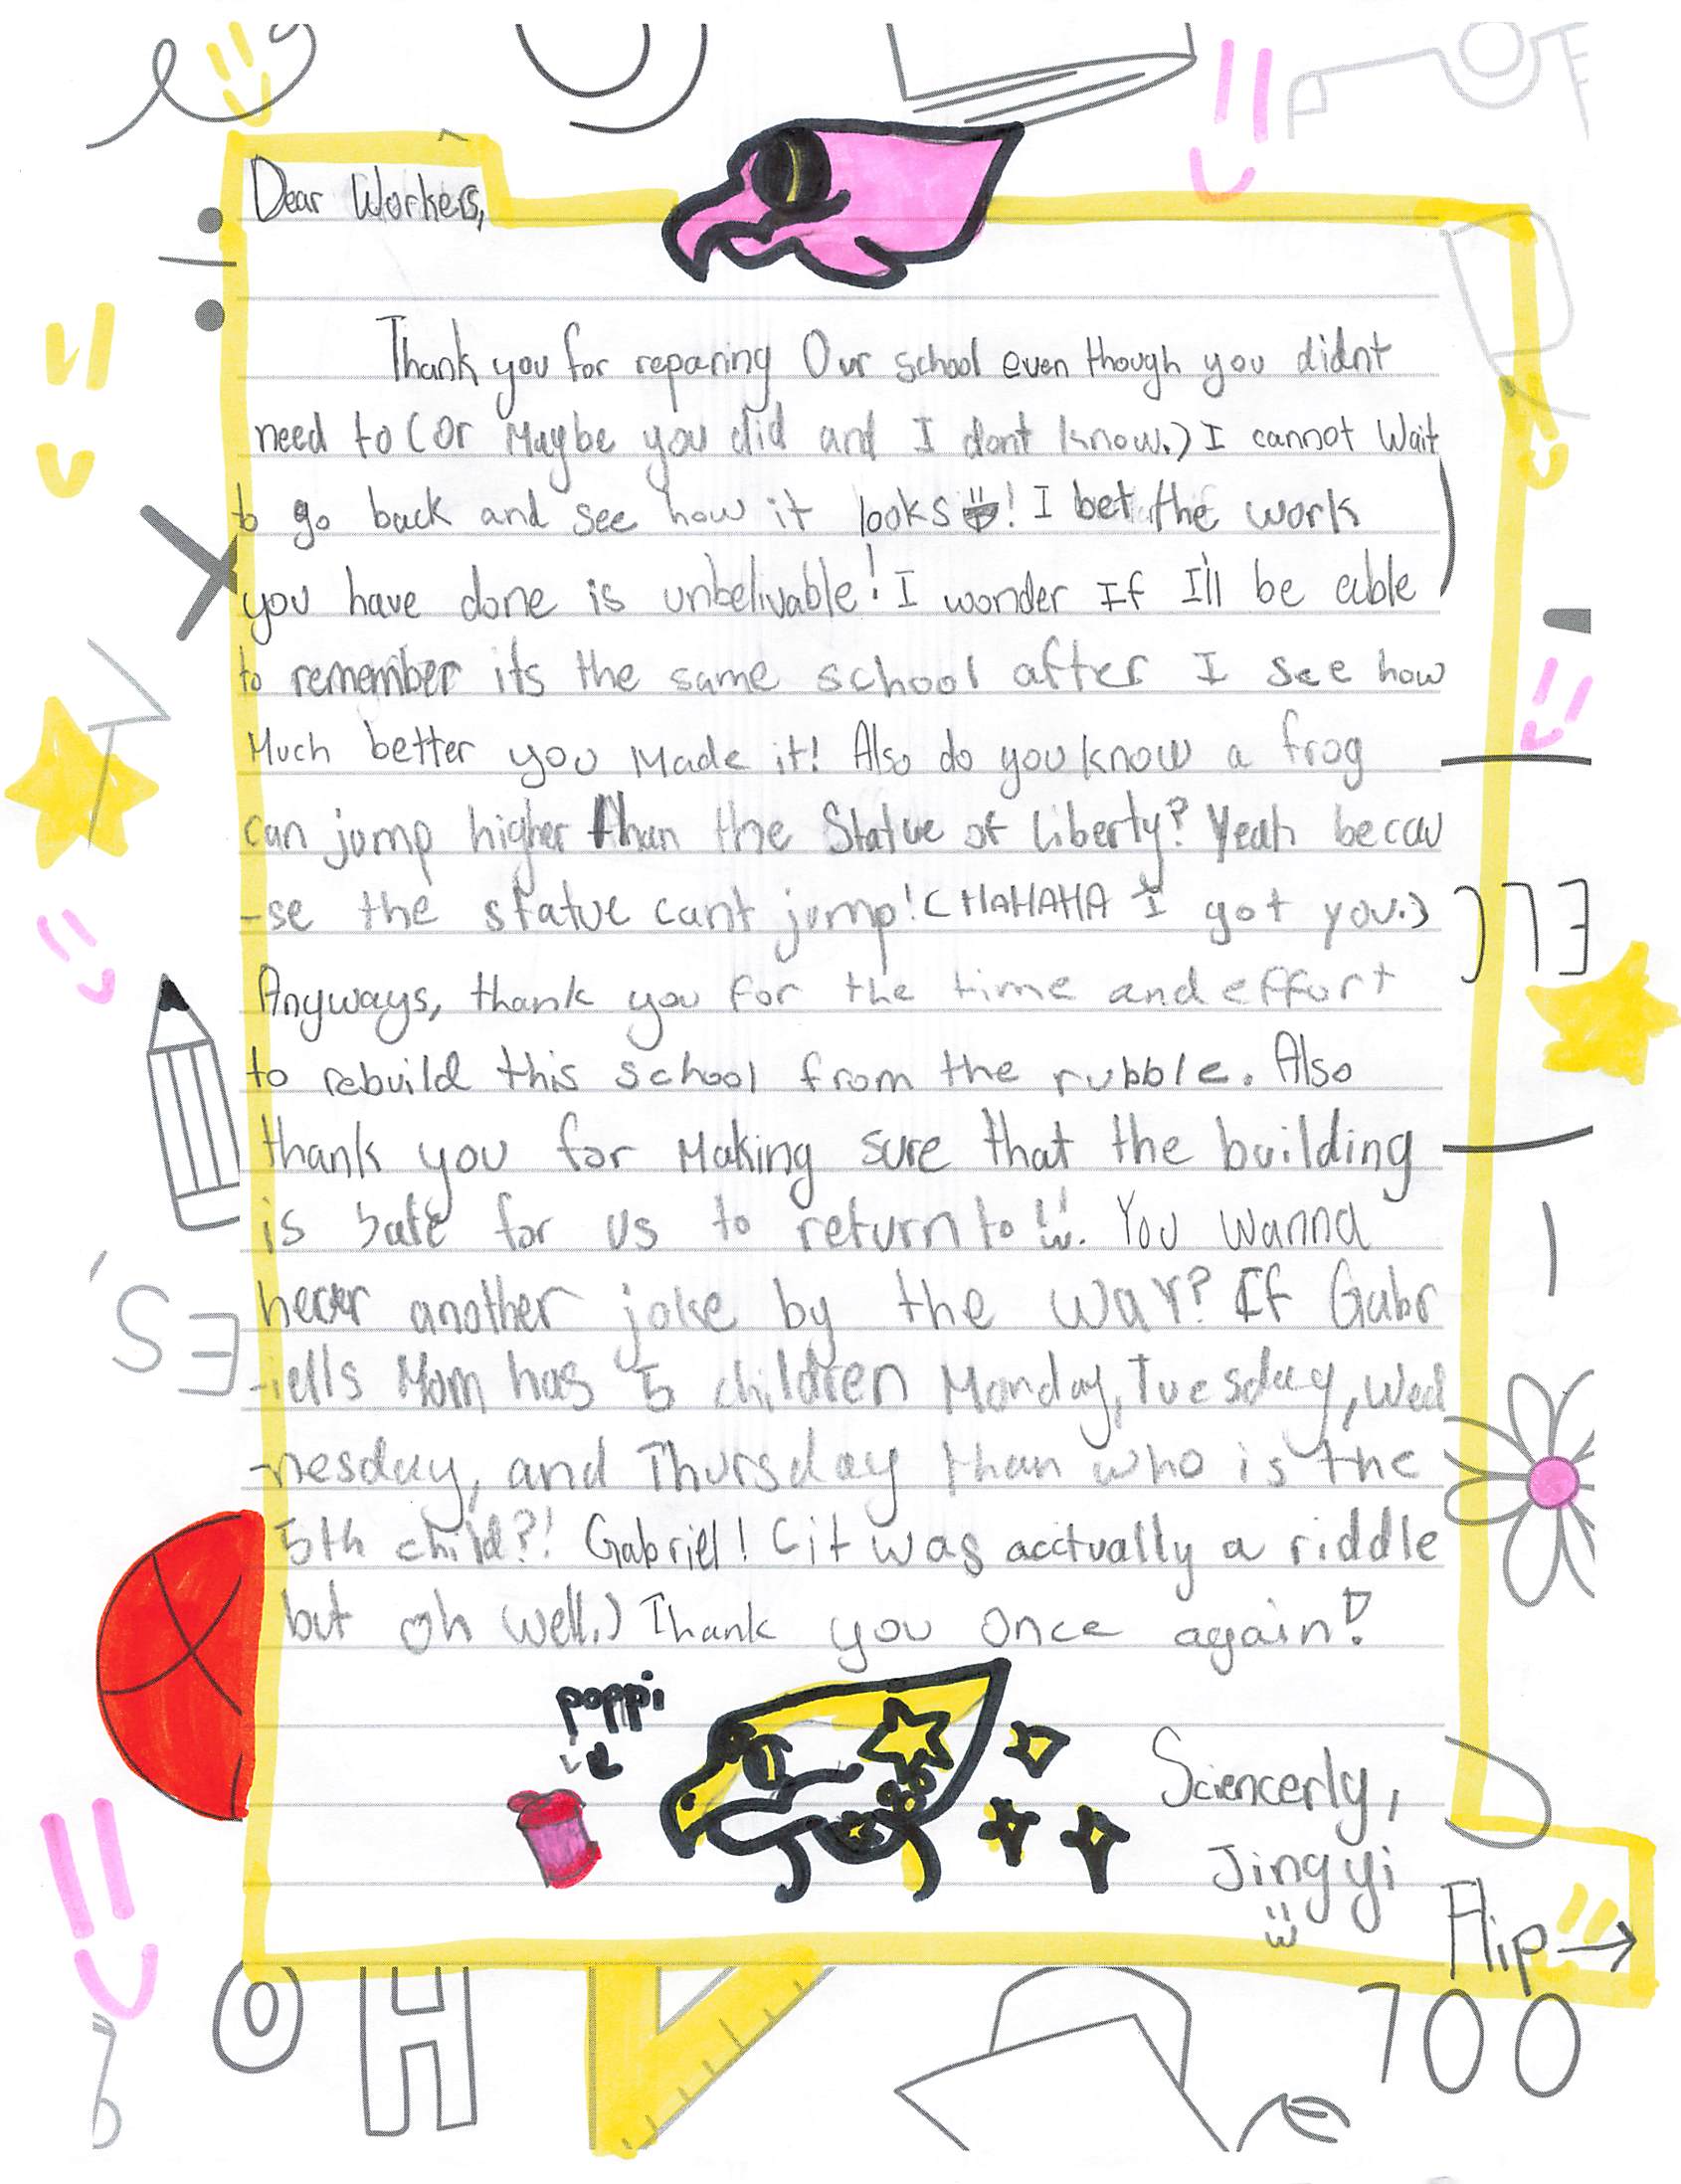 Dear Workers,
Thank you for reparing Our school even though you didnt
need to (or Maybe you did and I dont know.) I cannot Wait
to go back and see how it looks! I bet the work
you have done is unbelivable! I wonder If I'll be able
to remember its the same school after I see how
Much better you Made it! Also do you know a frog
can jump higher than the Statue of liberty? Yeah becau
-se the statue cant jump! (HAHAHA I got you.)
Anyways, thank you for the time and effort
to rebuild this school from the rubble. Also
thank you for Making sure that the building
is safe for us to return to. You wanna
hear another joke by the way? If Gabr
-iells Mom has 5 children Monday, Tuesday, Wed
-nesday, and Thursday than who is the
5th child?! Gabriell! (it was acctually a riddle
but oh well.) Thank you once again!
poppi
Sciencerly,
Jingyi
Flip →
ES
OH
700